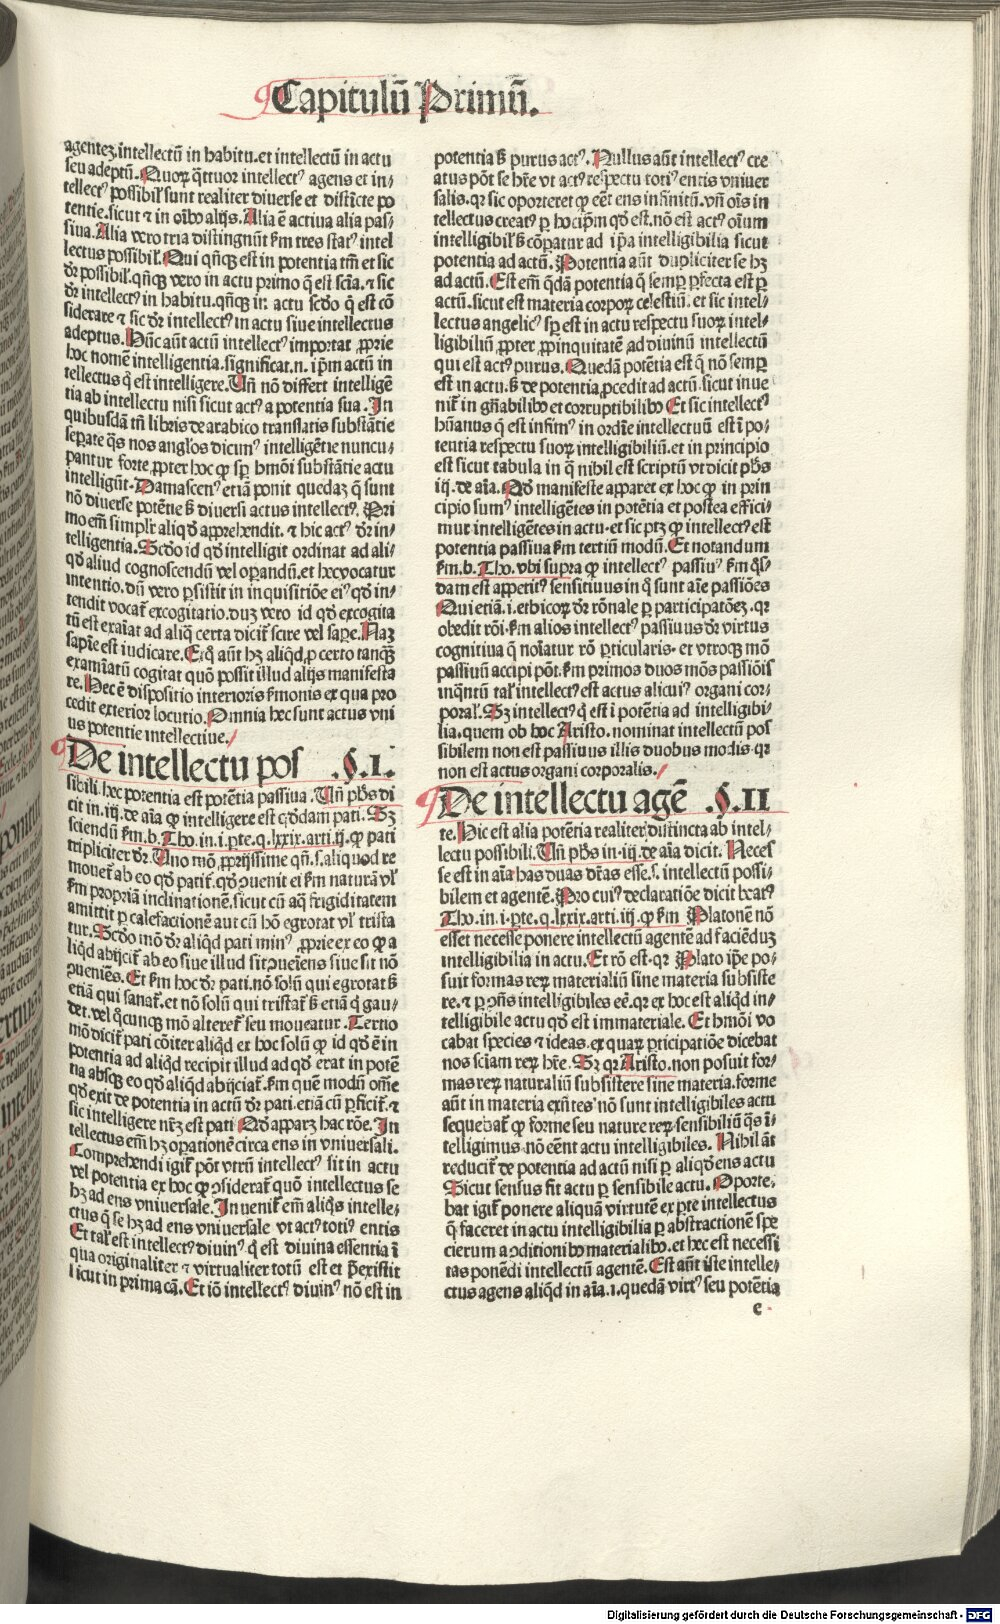 Capitulū Primū.
agentez.intellectū in habitu.et intellectū in actu
seu adeptū. Quoꝝ q̄ttuor intellectꝰ agens et in⸗
tellectꝰ possibil' sunt realiter diuerse et distīcte po
tentie.sicut ⁊ in oībꝰ alijs. Alia ē actiua alia pas⸗
siua. Alia vero tria distingnūt ẜm tres statꝰ intel
lectus possibil'. Qui qn̄qꝫ est in potentia tm̄ et sic
dr̄ possibil'.qn̄qꝫ vero in actu primo q̄ est scīa.⁊ sic
dr̄ intellectꝰ in habitu.qn̄qꝫ in actu scd̄o q̄ est cō
siderare ⁊ sic dr̄ intellectꝰ in actu siue intellectus
adeptus. Hūc aūt actū intellectꝰ importat ꝓprie
hoc nomē intelligentia.significat.n. ip̄m actū in
tellectus q̇ est intelligere. Vn̄ nō differt intelligē
tia ab intellectu nisi sicut actꝰ a potentia sua. In
quibusdā tn̄ libris de arabico translatis substātie
seperate q̄s nos angl̄os dicimꝰ intelligētie nuncu⸗
pantur forte ꝓpter hoc ꝙ sꝑ hmōi substātie actu
intelligūt. Damascenꝰ etiā ponit quedaꝫ q̄ sunt
nō diuerse potētie sꝫ diuersi actus intellectꝰ. Pri
mo em̄ simplr̄ aliqd̄ apprehendit. ⁊ hic actꝰ dr̄ in⸗
telligentia. Scd̄o id qd̄ intelligit ordinat ad ali⸗
qd̄ aliud cognoscendū vel oꝑandū.et hec vocatur
intentio.dū vero ꝑsistit in inquisitiōe eiꝰ qd̄ in⸗
tendit vocat̄ excogitatio.duꝫ vero id qd̄ excogita
tū est exaīat ad aliq̄ certa dicit̄ scire vel saꝑe. Naꝫ
sapīe est iudicare. Ex q̄ aūt hꝫ aliqd̄ ꝓ certo tanqꝫ
examīatū cogitat quō possit illud alijs manifesta
re. Hec ē dispositio interioris ẜmonis ex qua pro
cedit exterior locutio. Omnia hec sunt actus vni
us potentie intellectiue.
De intellectu pos .§.I.
sibili.hec potentia est potētia passiua. Vn̄ ph̄s di
cit in.iij.de aīa ꝙ intelligere est qd̄dam pati. Sꝫ
sciendū ẜm.b. Tho.in.i.ꝑte.q.lxxix.arti.ij.ꝙ pati
tripliciter dr̄. Vno mō ꝓprijssime qn̄.s.aliquod re
mouet̄ ab eo qd̄ patit̄.qd̄ ꝯuenit ei ẜm naturā vl'
ẜm propriā inclinationē.sicut cū aq̄ frigiditatem
amittit ꝑ calefactionē aut cū hō egrotat vl' trista
tur. Scd̄o mō dr̄ aliqd̄ pati minꝰ ꝓprie ex eo ꝙ a
liqd̄ abijcit̄ ab eo siue illud sit ꝯueīens siue sit nō
ꝯueniēs. Et ẜm hoc dr̄ pati.nō solū qui egrotat sꝫ
etiā qui sanat̄.et nō solū qui tristat̄ sꝫ etiā q̇ gau⸗
det.vel q̇cunqꝫ mō alteret̄ seu moueatur. Tertio
mō dicit̄ pati cōiter aliqd̄ ex hoc solū ꝙ id qd̄ ē in
potentia ad aliqd̄ recipit illud ad qd̄ erat in potē
tia absqꝫ eo qd̄ aliqd̄ abijciat̄.ẜm quē modū om̄e
qd̄ exit de potentia in actū dr̄ pati.etiā cū ꝑficit̄.⁊
sic intelligere nr̄ꝫ est pati Qd̄ apparꝫ hac rōe. In
tellectus em̄ hꝫ oꝑationē circa ens in vniuersali.
Comprehendi igit̄ pōt vtrū intellectꝰ sit in actu
vel potentia ex hoc ꝙ ꝯsiderat̄ quō intellectus se
hꝫ ad ens vniuersale. Inuenit̄ em̄ aliq̄s intelle⸗
ctus q̄ se hꝫ ad ens vniuersale vt actꝰ totiꝰ entis
Et tal' est intellectꝰ diuinꝰ q̇ est diuina essentia ī
qua originaliter ⁊ virtualiter totū est et p̄existit
sicut in prima cā. Et iō intellectꝰ diuinꝰ nō est in
potentia sꝫ purus actꝰ. Nullus aūt intellectꝰ cre
atus pōt se hr̄e vt actꝰ respectu totiꝰ entis vniuer
salis.qr̄ sic oporteret ꝙ eēt ens infinitū.vn̄ oīs in
tellectus creatꝰ ꝑ hoc ip̄m qd̄ est.nō est actꝰ oīum
intelligibil' sꝫ cōꝑatur ad ip̄a intelligibilia sicut
potentia ad actū. Potentia aūt dupliciter se hꝫ
ad actū. Est em̄ q̄dā potentia q̄ semꝑ ꝑfecta est ꝑ
actū.sicut est materia corpoꝝ celestiū.et sic intel⸗
lectus angelicꝰ sꝑ est in actu respectu suoꝝ intel⸗
ligibiliū ꝓpter ꝓpinquitatē ad diuinū intellectū
qui est actꝰ purus. Quedā potētia est q̄ nō semꝑ
est in actu.sꝫ de potentia ꝓcedit ad actū.sicut inue
nit̄ in gn̄abilibꝰ et corruptibilibꝰ Et sic intellectꝰ
hūanus q̇ est infimꝰ in ordīe intellectuū est ī po⸗
tentia respectu suoꝝ intelligibiliū.et in principio
est sicut tabula in q̄ nihil est scriptū vt dicit ph̄s
iij.de aīa. Qd̄ manifeste apparet ex hoc ꝙ in prin
cipio sumꝰ intelligētes in potētia et postea effici⸗
mur intelligētes in actu.et sic ptꝫ ꝙ intellectꝰ est
potentia passiua ẜm tertiū modū. Et notandum
ẜm.b. Tho.vbi supra ꝙ intellectꝰ passiuꝰ ẜm q̇s⸗
dam est appetitꝰ sensitiuus in q̇ sunt aīe passiōes
Qui etiā.i.ethicoꝝ dr̄ rōnale ꝑ participatōeꝫ.qr̄
obedit rōi.ẜm alios intellectꝰ passiuus dr̄ virtus
cognitiua q̄ noīatur rō ꝑticularis.et vtroqꝫ mō
passiuū accipi pōt.ẜm primos duos mōs passiōis
inq̄ntū tal' intellectꝰ est actus alicuiꝰ organi cor⸗
poral'. Sꝫ intellectꝰ q̇ est ī potētia ad intelligibi⸗
lia.quem ob hoc Aristo.nominat intellectū pos
sibilem non est passiuus illis duobus modis.qr̄
non est actus organi corporalis.
De intellectu agē .§.II
te. Hic est alia potētia realiter distincta ab intel⸗
lectu possibili. Vn̄ ph̄s in.iij.de aīa dicit. Neces
se est in aīa has duas dr̄as esse.s.intellectū possi⸗
bilem et agentē. Pro cuiꝰ declaratiōe dicit beatꝰ
Tho.in.i.ꝑte.q.lxxix.arti.iij.ꝙ ẜm Platonē nō
esset necesse ponere intellectū agentē ad faciēduꝫ
intelligibilia in actu. Et rō est.qr̄ Plato ip̄e po⸗
suit formas reꝝ materialiū sine materia subsiste
re.⁊ ꝑ ꝯn̄s intelligibiles eē.qr̄ ex hoc est aliqd̄ in⸗
telligibile actu qd̄ est immateriale. Et hmōi vo
cabat species ⁊ ideas.ex quaꝝ ꝑticipatiōe dicebat
nos sciam reꝝ hr̄e. Sꝫ qr̄ Aristo.non posuit for⸗
mas reꝝ naturaliū subsistere sine materia.forme
aūt in materia exn̄tes nō sunt intelligibiles actu
sequebat̄ ꝙ forme seu nature reꝝ sensibiliū q̄s ī⸗
telligimus nō eēnt actu intelligibiles. Nihil āt
reducit̄ de potentia ad actū nisi ꝑ aliqd̄ ens actu
Sicut sensus fit actu ꝑ sensibile actu. Oporte⸗
bat igit̄ ponere aliquā virtutē ex ꝑte intellectus
q̄ faceret in actu intelligibilia ꝑ abstractionē spe
cierum a ꝯditionibꝰ materialibꝰ.et hec est necessi
tas ponēdi intellectū agentē. Est aūt iste intelle⸗
ctus agens aliqd̄ in aīa.i.quedā virtꝰ seu potētia
e
Digitalisierung gefördert durch die Deutsche Forschungsgemeinschaft - DFG